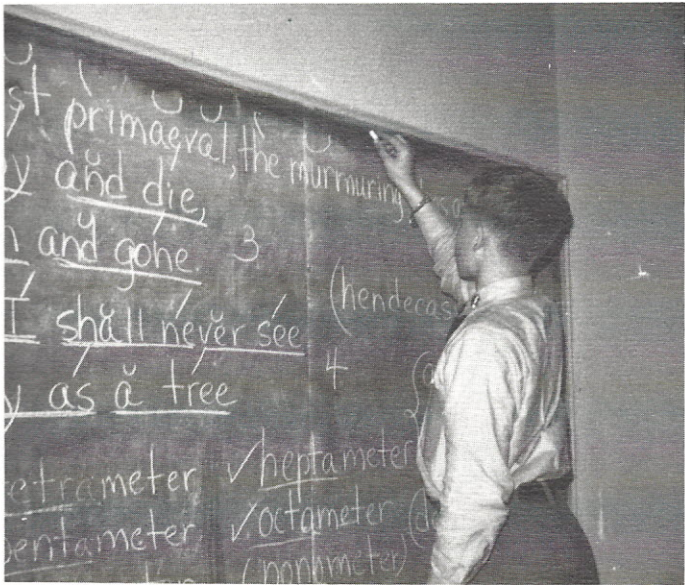 primaeval, the murmuring
and die,
and gone. 3
(hendecas
I shall never see
4
y as a tree
etrameter ✓heptameter
entameter ✓octameter
(nonameter)